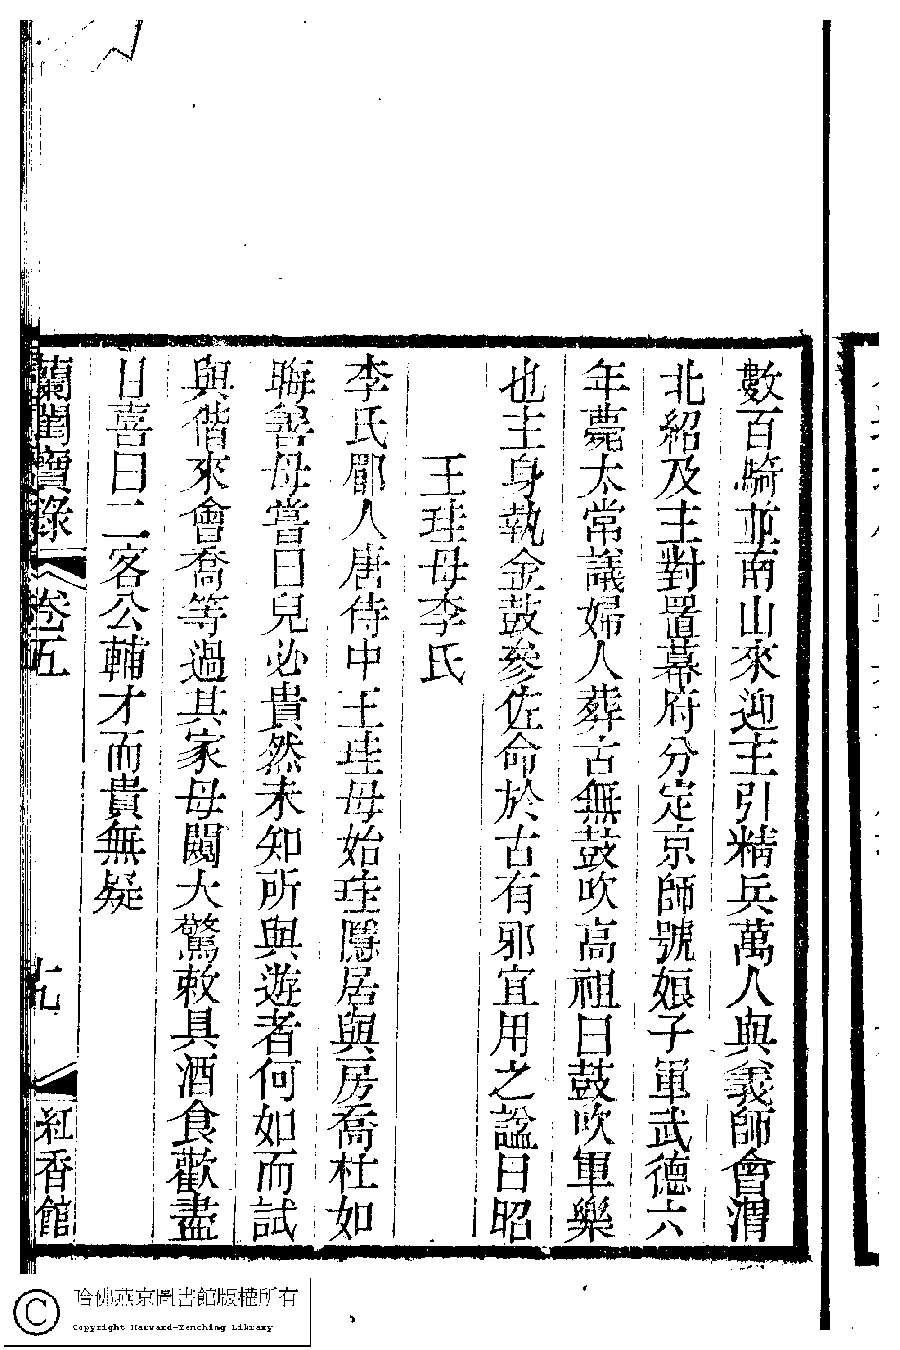 數百騎並南山來迎主引精兵萬人與義師會渭
北紹及主對置幕府分定京師號娘子軍武德六
年薨太常議婦人葬古無鼓吹高祖曰鼓吹軍樂
也主身執金鼓參佐命於古有邪宜用之諡曰昭
王珪母李氏
李氏郿人唐侍中王珪母始珪隱居與房喬杜如
晦善母嘗曰兒必貴然未知所與遊者何如而試
與偕來會喬等過其家母闚大驚敕具酒食歡盡
日喜曰二客公輔才而貴無疑
蘭閨寶錄
卷五
七
紅香館
哈佛燕京圖書館版權所有
Copyright Harvard-Yenching Library